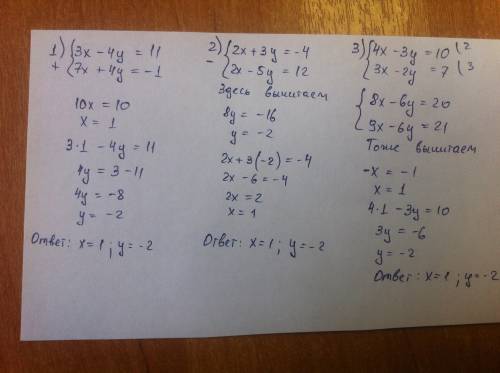 1) + { 3x - 4y = 11
7x + 4y = -1
10x = 10
x = 1
3·1 - 4y = 11
4y = 3 - 11
4y = -8
y = -2
Ответ: x = 1 ; y = -2
2) - { 2x + 3y = -4
2x - 5y = 12
Здесь вычитаем
8y = -16
y = -2
2x + 3(-2) = -4
2x - 6 = -4
2x = 2
x = 1
Ответ: x = 1 ; y = -2
3) { 4x - 3y = 10 | 2
3x - 2y = 7 | 3
{ 8x - 6y = 20
9x - 6y = 21
Тоже вычитаем
-x = -1
x = 1
4·1 - 3y = 10
3y = -6
y = -2
Ответ: x = 1 ; y = -2